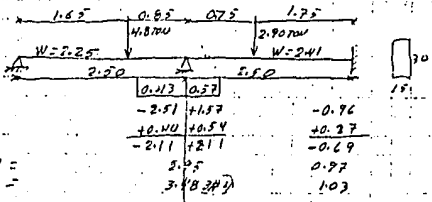 1.65 0.85 0.75 1.75
4.8 TON 2.90 TON
W=2.25 W=2.41
2.50 2.50
30
15
0.43 0.57
-2.51 +1.57 -0.96
+0.54 +0.27
-2.11 +2.11 -0.69
0.97
1.03